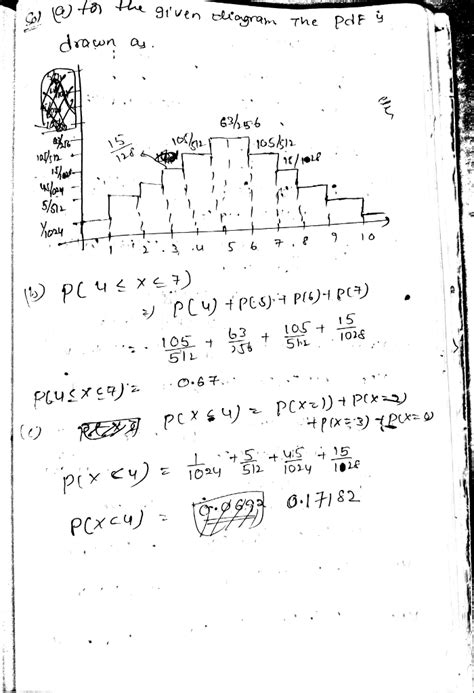 Sol (a) for the given diagram The PdF is
drawn as.
63/256
15/128
105/512
105/512
15/1028
105/512
45/1024
5/512
1/1024
1 2 3 4 5 6 7 8 9 10
(b) P(4 ≤ x ≤ 7)
=) P(4) + P(5) + P(6) + P(7)
= 105/512 + 63/256 + 105/512 + 15/1028
P(4 ≤ x ≤ 7) = 0.67
(c) P(X ≤ 4) = P(X=1) + P(X=2)
+ P(X=3) + P(X=0)
P(X < 4) = 1/1024 + 5/512 + 45/1024 + 15/1028
P(X < 4) = 0.17182